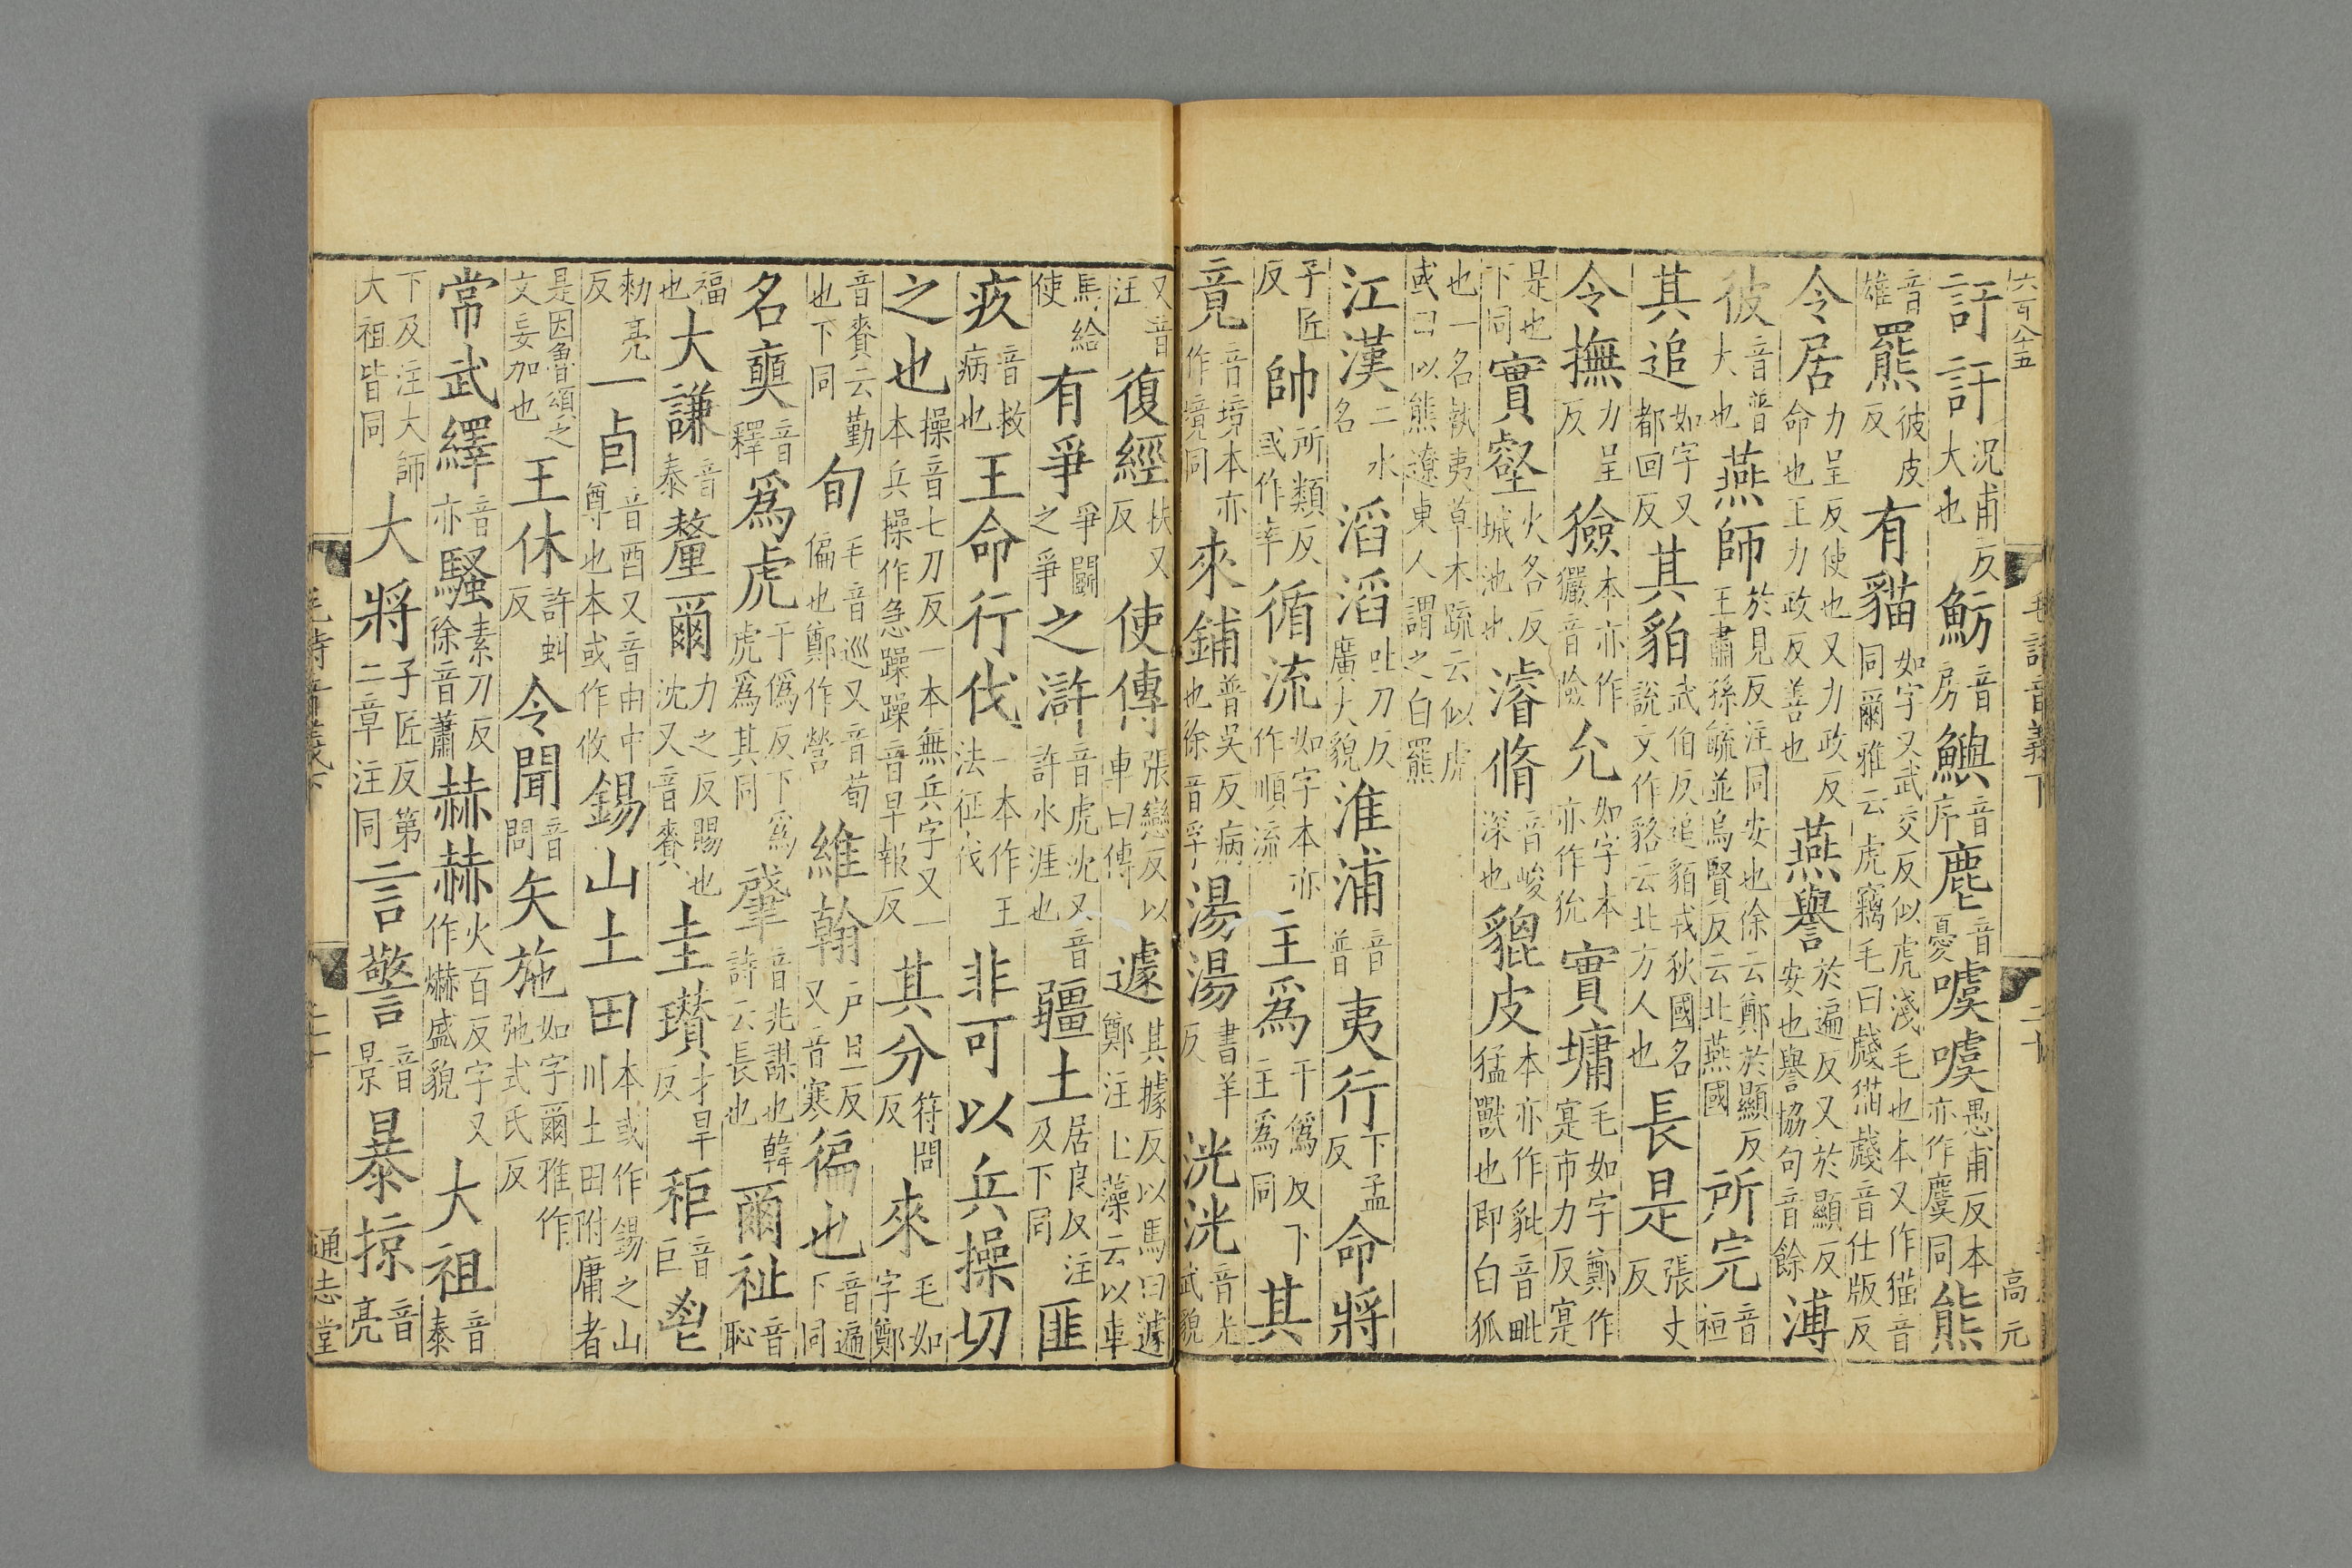 六百八十五
毛詩音義下
二十
高元
訏訏況甫反大也魴音房鱮音序麀音憂噳噳愚甫反本亦作麌同熊
音雄羆彼皮反有貓如字又武交反似虎淺毛也本又作猫音同爾雅云虎竊毛曰虥猫虥音仕版反
令居力呈反使也又力政反命也王力政反善也燕譽於遍反又於顯反安也譽協句音餘溥
彼音普大也燕師於見反注同安也徐云鄭於顯反王肅孫毓並烏賢反云北燕國所完音桓
其追如字又都回反其貊武伯反追貊戎狄國名說文作貉云北方人也長是張丈反
令撫力呈反獫本亦作玁音險允如字本亦作狁實墉毛如字鄭作寔市力反寔
是也下同實壑火各反城池也濬脩音峻深也貔皮本亦作豼音毗猛獸也即白狐
也一名執夷草木疏云似虎或曰以熊遼東人謂之白羆
江漢二水名滔滔吐刀反廣大貌淮浦音普夷行下孟反命將
子匠反帥所類反或作率循流如字本亦作順流主為于偽反下主為同其
竟音境本亦作境同來鋪普吳反病也徐音孚湯湯書羊反洸洸音光武貌
又音注復經扶又反使傳張戀反以車曰傳遽其據反以馬曰遽鄭注上藻云以車
馬給使有爭爭鬬之爭之滸音虎沈又音許水涯也疆土居良反注及下同匪
疚音救病也王命行伐一本作王法征伐非可以兵操切
之也操音七刀反一本無兵字又一本兵操作急躁躁音早報反其分符問反來毛如字鄭
音賚云勤也下同旬毛音巡又音荀徧也鄭作營維翰戶旦反又音寒徧也音遍下同
名奭音釋為虎于偽反下為虎為其同肇音兆謀也韓詩云長也爾祉音恥
福也大謙音泰釐爾力之反賜也沈又音賚圭瓚才旱反秬音巨鬯
勑亮反一卣音酉又音由中尊也本或作攸錫山土田本或作錫之山川土田附庸者
是因魯頌之文妄加也王休許虯反令聞音問矢施如字爾雅作弛式氏反
常武繹音亦騷素刀反徐音蕭赫赫火百反字又作爀盛貌大祖音泰
下及注大師大祖皆同大將子匠反第二章注同言警音景暴掠音亮
通志堂